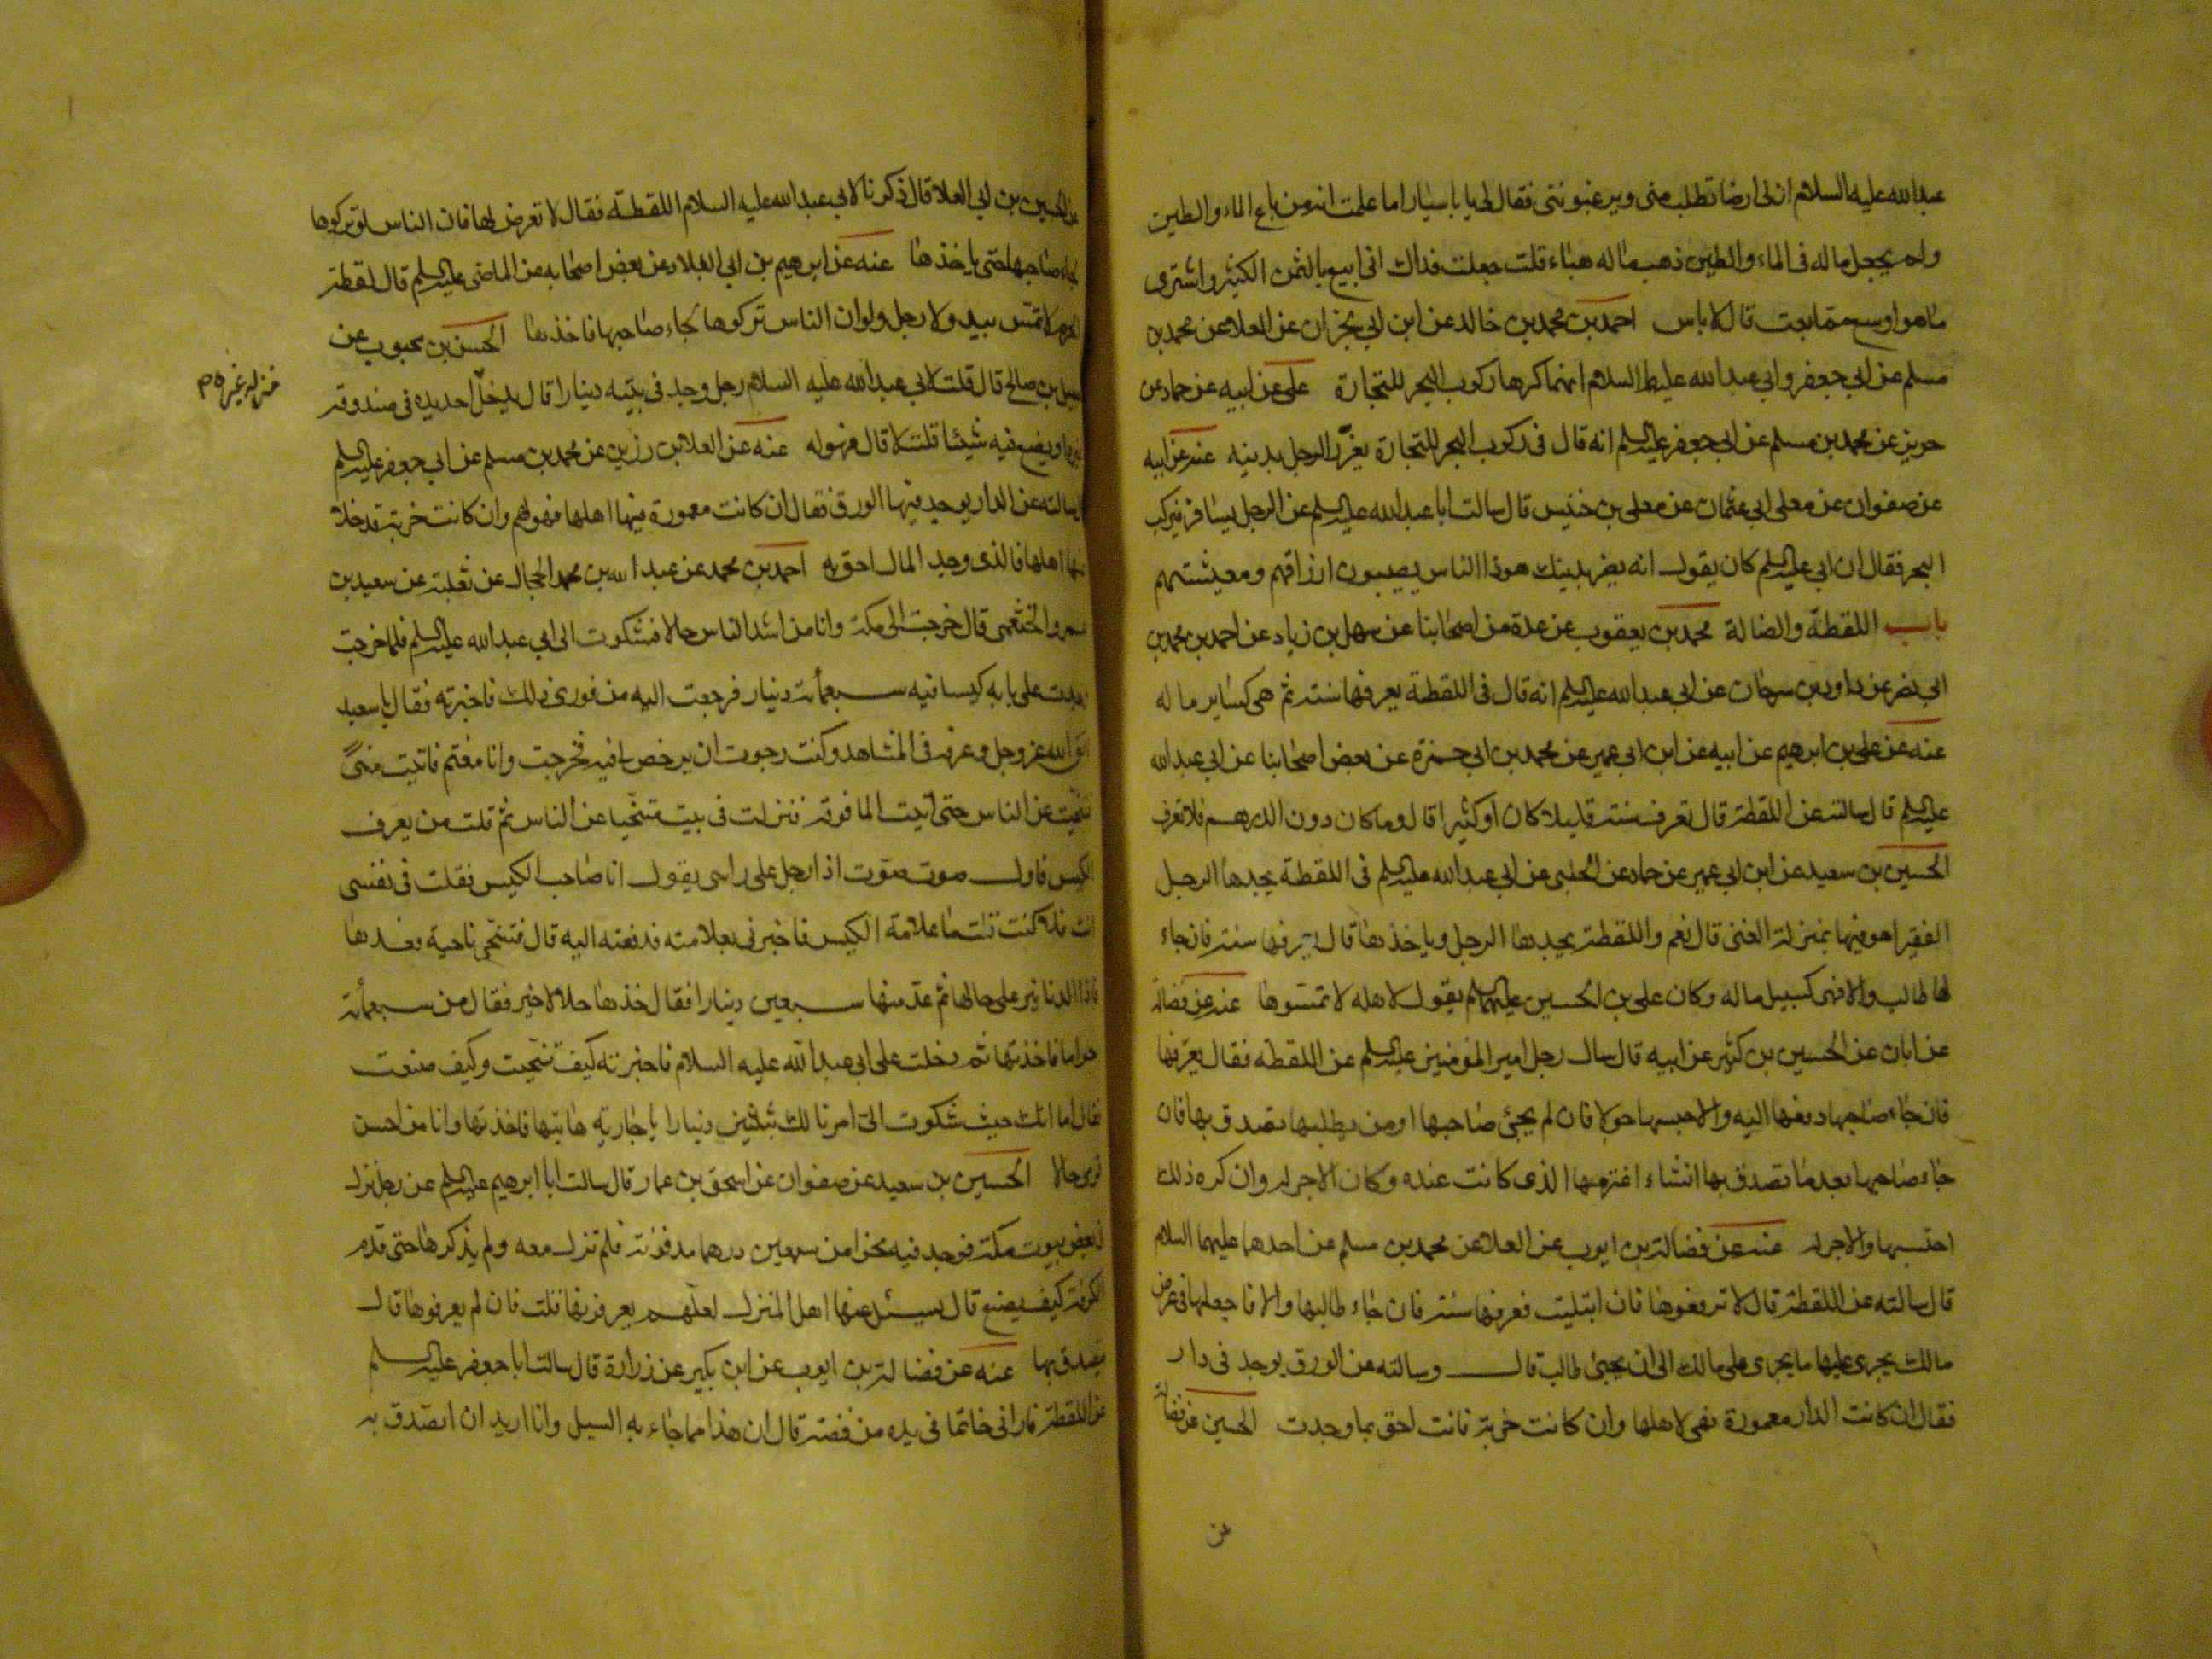 عبدالله عليه السلام ان لى ارضا تطلب منى ويرغبونى فقال لى يا با سيار اما علمت انه من باع الماء والطين
ولم يجعل ماله فى الماء والطين ذهب ماله هباء قلت جعلت فداك انى ابيع بالثمن الكثير واشترى
ما هو اوسع مما بعت قال لا باس احمد بن محمد بن خالد عن ابن ابى نجران عن العلا عن محمد بن
مسلم عن ابى جعفر وابى عبدالله عليهما السلام انهما كرها ركوب البحر للتجارة على عن ابيه عن حماد عن
حريز عن محمد بن مسلم عن ابى جعفر عليه السلم انه قال فى ركوب البحر للتجارة يغرّر الرجل بدينه عنه عن ابيه
عن صفوان عن معلى ابى عثمان عن معلى بن خنيس قال سالت ابا عبدالله عليه السلم عن الرجل يسافر فيركب
البحر فقال ان ابى عليه السلم كان يقول انه يضر بدينك هوذا الناس يصيبون ارزاقهم ومعيشتهم
باب اللقطة والضالة محمد بن يعقوب عن عدة من اصحابنا عن سهل بن زياد عن احمد بن محمد بن
ابى نصر عن داود بن سرحان عن ابى عبدالله عليه السلم انه قال فى اللقطة يعرفها سنة ثم هى كساير ماله
عنه عن على بن ابرهيم عن ابيه عن ابن ابى عمير عن محمد بن ابى حمزة عن بعض اصحابنا عن ابى عبدالله
عليه السلم قال سالته عن اللقطة قال تعرف سنة قليلا كان او كثيرا قال وما كان دون الدرهم فلا تعرف
الحسين بن سعيد عن ابن ابى عمير عن حماد عن الحلبى عن ابى عبدالله عليه السلم فى اللقطة يجدها الرجل
الفقير اهو فيها بمنزلة الغنى قال نعم واللقطة يجدها الرجل وياخذها قال يعرفها سنة فان جاء
لها طالب والا فهى كسبيل ماله وكان على بن الحسين عليهما السلم يقول لاهله لا تمسوها عنه عن فضالة
عن ابان عن الحسين بن كثير عن ابيه قال سال رجل امير المؤمنين عليه السلم عن اللقطه فقال يعرّفها
فان جاء صاحبها دفعها اليه والا حبسها حولا فان لم يجئ صاحبها او من يطلبها تصدق بها فان
جاء صاحبها بعد ما تصدق بها ان شاء اغترمها الذى كانت عنده وكان الاجر له وان كره ذلك
احتسبها والاجر له عنه عن فضالة بن ايوب عن العلا عن محمد بن مسلم عن احدهما عليهما السلام
قال سالته عن اللقطة قال لا ترفعوها فان ابتليت فعرفها سنة فان جاء طالبها والا فاجعلها فى عرض
مالك يجرى عليها ما يجرى على مالك الى ان يجئ طالب قال وسالته عن الورق يوجد فى دار
فقال ان كانت الدار معمورة فهى لاهلها وان كانت خربة فانت احق بما وجدت الحسين عن فضالة
عن
عن الحسين بن ابى العلا قال ذكرنا لابى عبدالله عليه السلام اللقطة فقال لا تعرض لها فان الناس لو تركوها
لجاء صاحبها حتى ياخذها عنه عن ابرهيم بن ابى البلاد عن بعض اصحابه عن الماضى عليه السلم قال لقطة
الحرم لا تمس بيد ولا رجل ولو ان الناس تركوها لجاء صاحبها فاخذها الحسن بن محبوب عن
جميل بن صالح قال قلت لابى عبدالله عليه السلام رجل وجد فى بيته دينارا قال يدخل احد يده فى صندوقه
غيره او يضع فيه شيئا قلت لا قال فهو له عنه عن العلا بن رزين عن محمد بن مسلم عن ابى جعفر عليه السلم
قال سالته عن الدار يوجد فيها الورق فقال ان كانت معمورة فيها اهلها فهو لهم وان كانت خربة قد جلا
عنها اهلها فالذى وجد المال احق به احمد بن محمد عن عبدالله بن محمد الحجال عن ثعلبة عن سعيد بن
عمرو الخثعمى قال خرجت الى مكة وانا من اشد الناس حالا فشكوت الى ابى عبدالله عليه السلم فلما خرجت
وجدت على بابه كيسا فيه سبعمائة دينار فرجعت اليه من فورى ذلك فاخبرته فقال يا سعيد
اتق الله عز وجل وعرفه فى المشاهد وكنت رجوت ان يرخص لى فيه فخرجت وانا مغتم فاتيت منى
فتنحيت عن الناس حتى اتيت الماقوفة فنزلت فى بيت متنحيا عن الناس ثم قلت من يعرف
الكيس فاول صوت صوّت اذا رجل على راسى يقول انا صاحب الكيس فقلت فى نفسى
انت فلا كنت قلت ما علامة الكيس فاخبرنى بعلامته فدفعته اليه قال فتنحى ناحية فعدها
فاذا الدنانير على حالها ثم عدّ منها سبعين دينارا فقال خذها حلالا خير فقال من سبعمائة
حراما فاخذتها ثم دخلت على ابى عبدالله عليه السلام فاخبرته كيف تنحيت وكيف صنعت
فقال اما انك حيث شكوت الىّ امرنا لك بثلثين دينارا يا جارية هاتيها فاخذتها وانا من احسن
قومى حالا الحسين بن سعيد عن صفوان عن اسحق بن عمار قال سالت ابا ابرهيم عليه السلم عن رجل نزل
فى بعض بيوت مكة فوجد فيه نحوا من سبعين درهما مدفونة فلم تزل معه ولم يذكرها حتى قدم
الكوفة كيف يصنع قال يسئل عنها اهل المنزل لعلهم يعرفونها قلت فان لم يعرفوها قال
يتصدق بها عنه عن فضالة بن ايوب عن ابن بكير عن زرارة قال سالت ابا جعفر عليه السلم
عن اللقطة فارانى خاتما فى يده من فضة قال ان هذا مما جاء به السيل وانا اريد ان اتصدق به